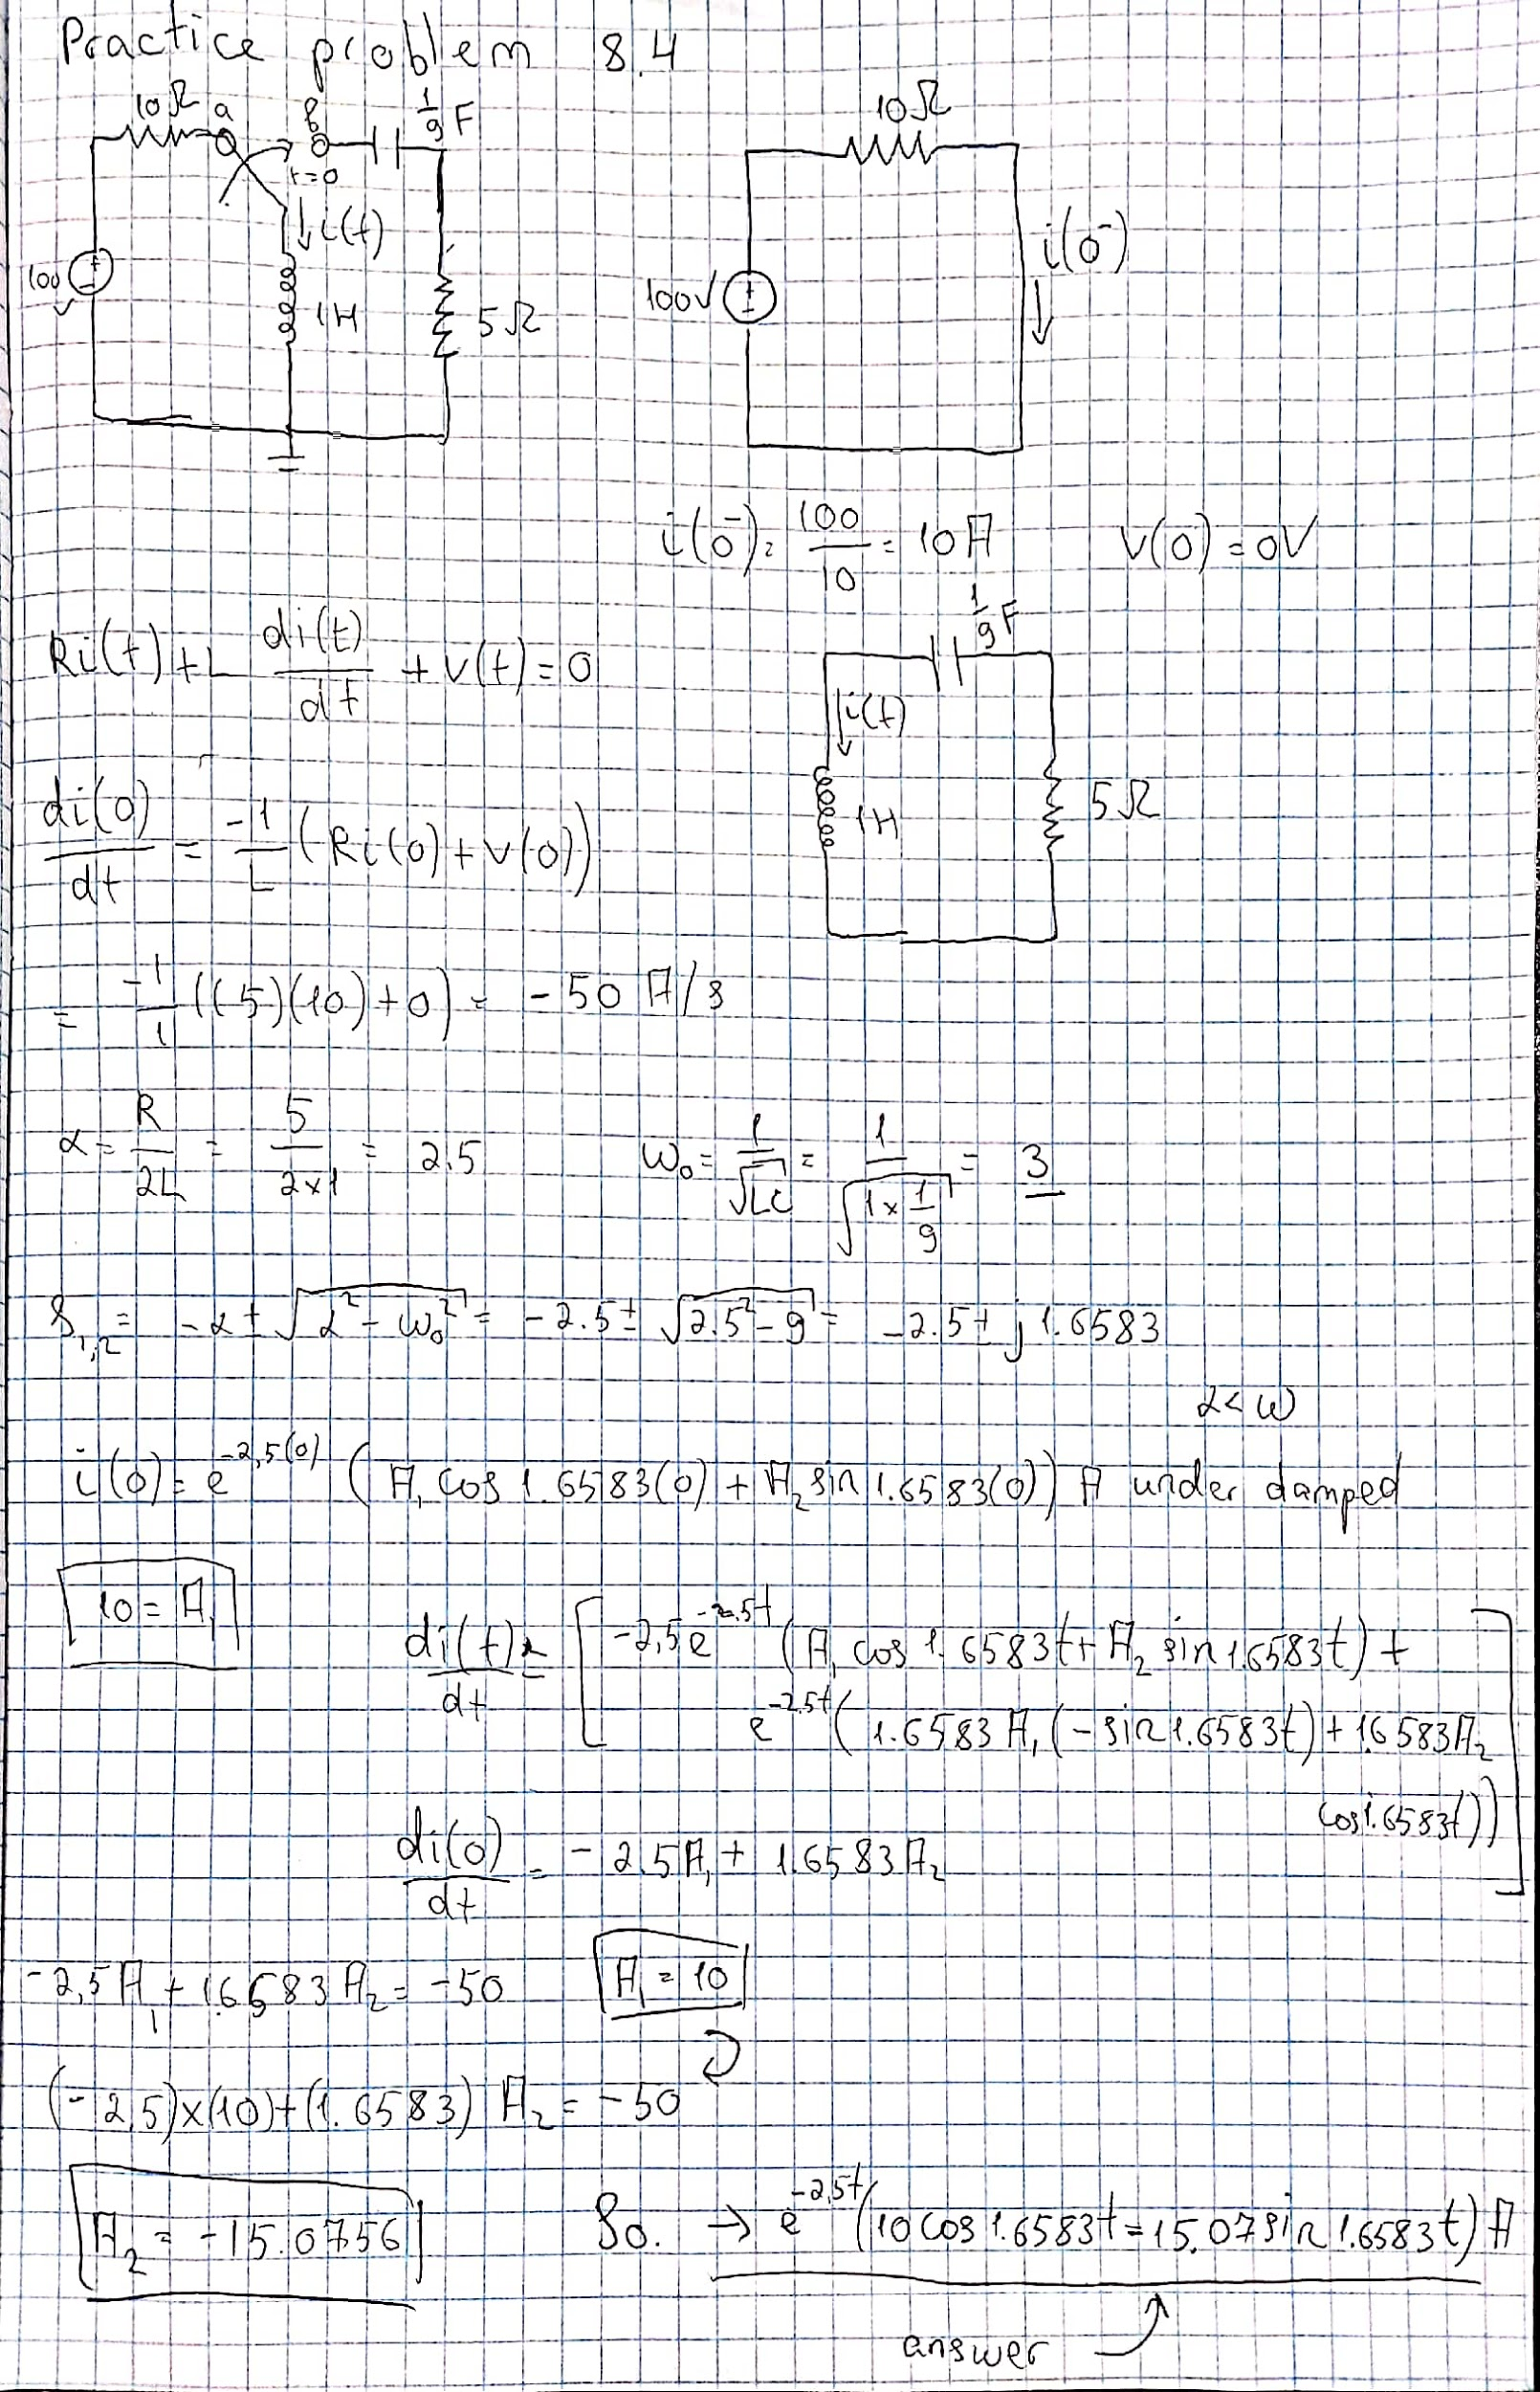 Practice problem 8.4
10Ω a b 1/9 F
t=0
i(t)
100 V
1H
5Ω
10Ω
100V
i(0⁻)
i(0⁻) = 100/10 = 10A v(0) = 0V
Ri(t) + L di(t)/dt + v(t) = 0
1/9 F
i(t)
1H
5Ω
di(0)/dt = -1/L (Ri(0) + v(0))
= -1/1 ((5)(10) + 0) = -50 A/s
α = R/2L = 5/2×1 = 2.5 ω₀ = 1/√LC = 1/√(1×1/9) = 3
S₁,₂ = -α ± √(α² - ω₀²) = -2.5 ± √(2.5² - 9) = -2.5 ± j 1.6583
α < ω
i(0) = e^-2,5(0) (A₁ cos 1.6583(0) + A₂ sin 1.6583(0)) A under damped
10 = A₁
di(t)/dt = [-2,5e^-2.5t (A₁ cos 1.6583t + A₂ sin 1.6583t) +
e^-2.5t (1.6583 A₁ (-sin 1.6583t) + 1.6583A₂
cos 1.6583t))]
di(0)/dt = -2.5A₁ + 1.6583A₂
-2,5 A₁ + 1.6583 A₂ = -50 A₁ = 10
(-2.5)×(10)+(1.6583) A₂ = -50
A₂ = -15.0756 So. → e^-2,5t (10 cos 1.6583t = 15.07 sin 1.6583t) A
answer